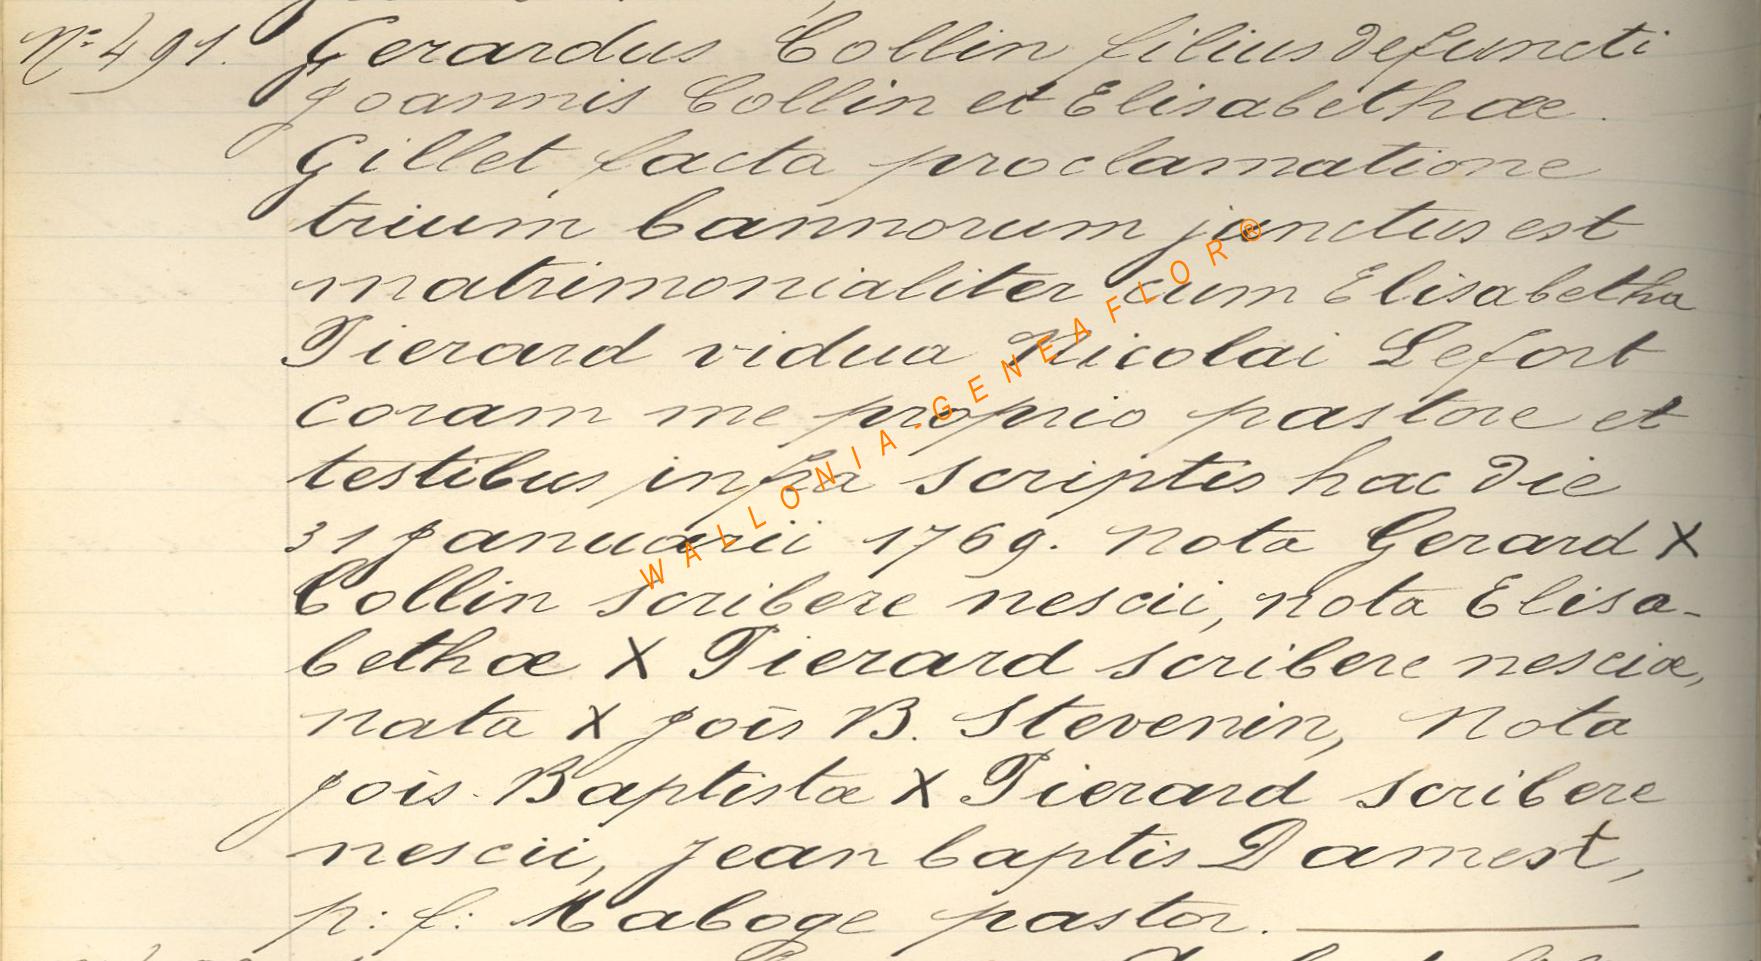 N° 491. Gerardus Collin filius defuncti
Joannis Collin et Elisabethæ.
Gillet, facta proclamatione
trium bannorum junctus est
matrimonialiter cum Elisabetha
Pierard vidua Nicolai Lefort
coram me proprio pastore et
testibus infra scriptis hac die
31 Januarii 1769. Nota Gerard X
Collin scribere nescii, nota Elisa-
bethæ X Pierard scribere nesciæ,
nata X Jois B. Stevenin, Nota
Jois Baptistæ X Pierard scribere
nescii, Jean baptis Damest,
p: f: Maboge pastor.
WALLONIA-GENEAFLOR®